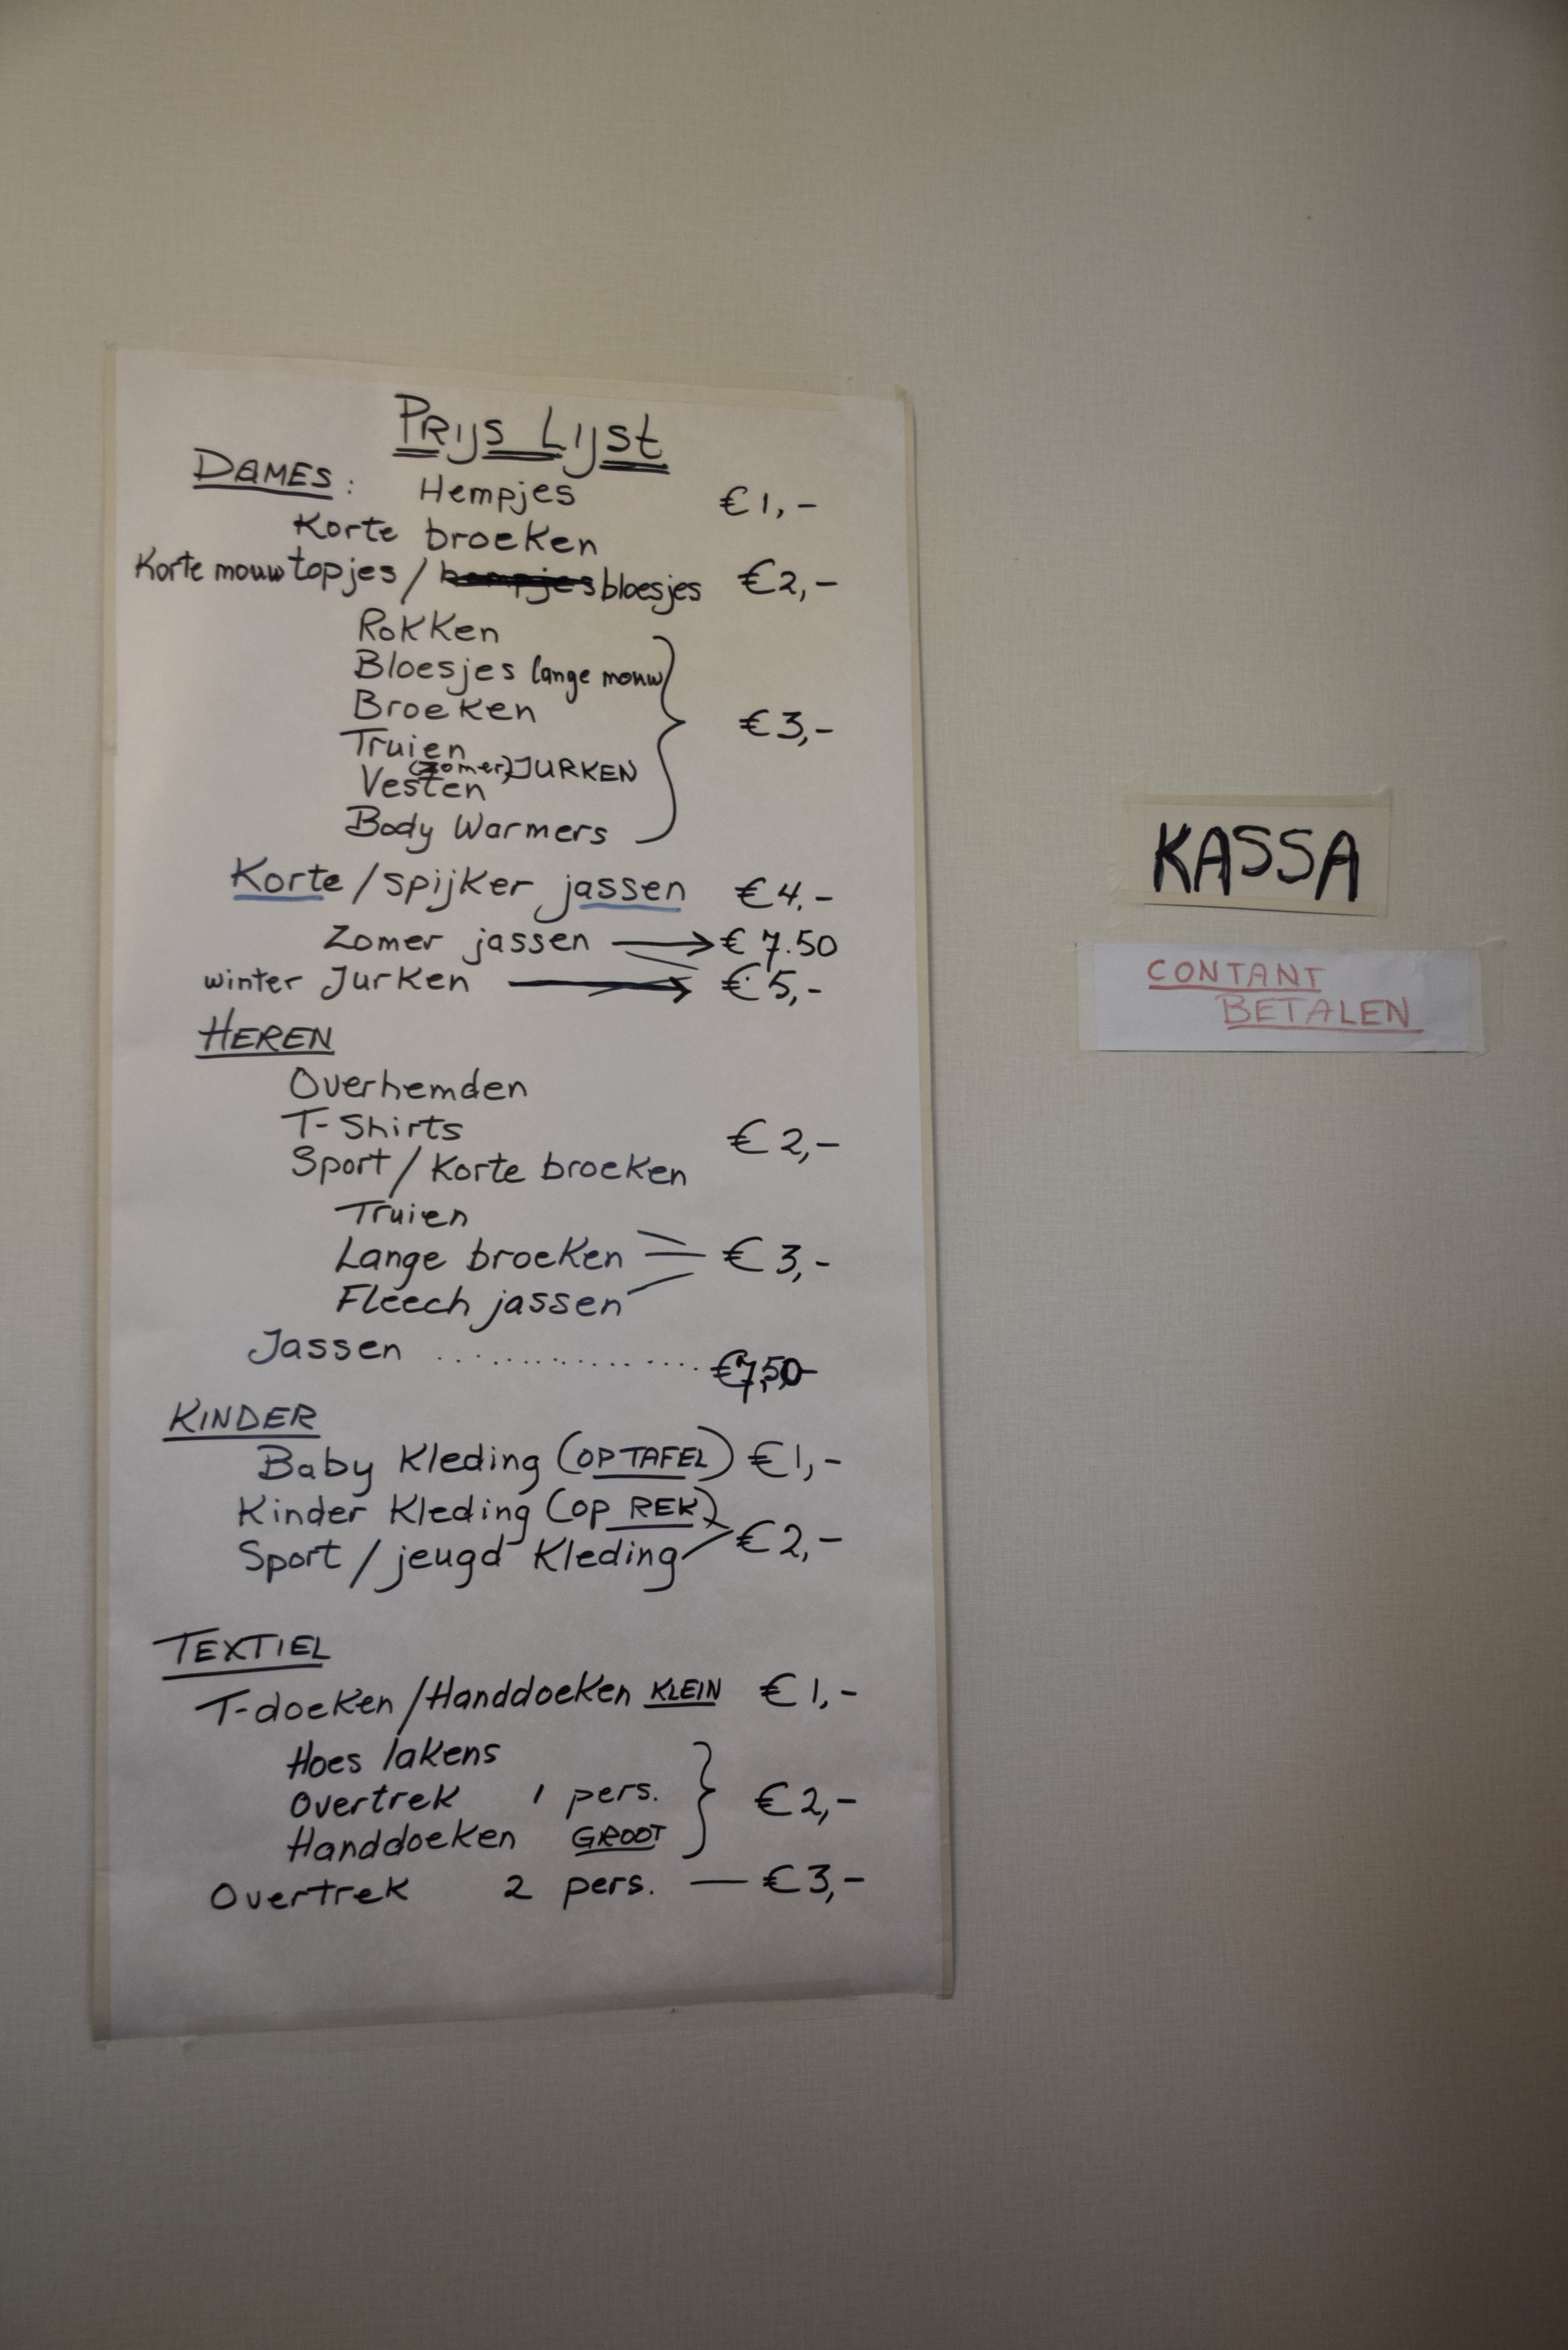 PRIJS LIJST
DAMES: Hempjes €1,-
Korte broeken
Korte mouw topjes / bloesjes €2,-
Rokken
Bloesjes lange mouw
Broeken
€3,-
Truien
(zomer) JURKEN
Vesten
Body Warmers
Korte / spijker jassen €4.-
Zomer jassen → € 7.50
winter Jurken → € 5,-
HEREN
Overhemden
T-Shirts €2,-
Sport / Korte broeken
Truien
Lange broeken € 3,-
Fleech jassen
Jassen .................. €7,50-
KINDER
Baby Kleding (OP TAFEL) €1,-
Kinder Kleding (OP REK)
€2,-
Sport / jeugd Kleding
TEXTIEL
T-doeken / Handdoeken KLEIN €1,-
Hoes lakens
Overtrek 1 pers. €2,-
Handdoeken GROOT
Overtrek 2 pers. — €3,-
KASSA
CONTANT
BETALEN